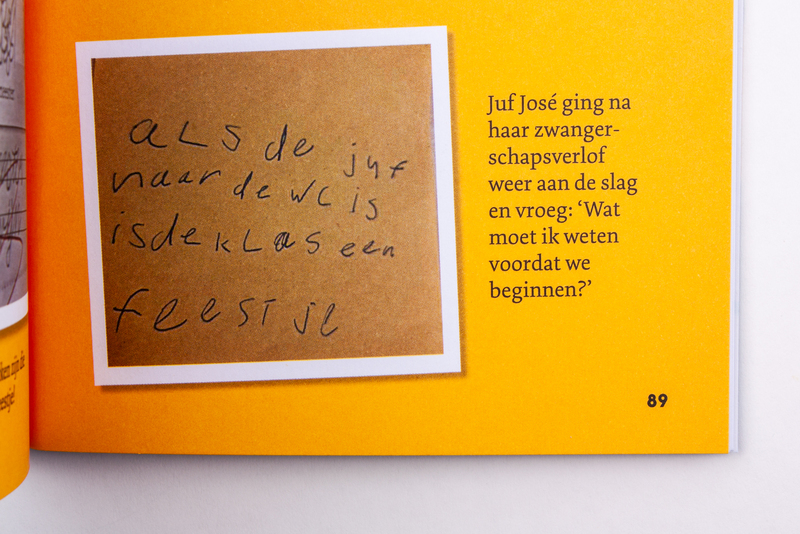 aLs de juf
naar de wc is
is de kLas een
feestje
Juf José ging na
haar zwanger-
schapsverlof
weer aan de slag
en vroeg: ‘Wat
moet ik weten
voordat we
beginnen?’
89